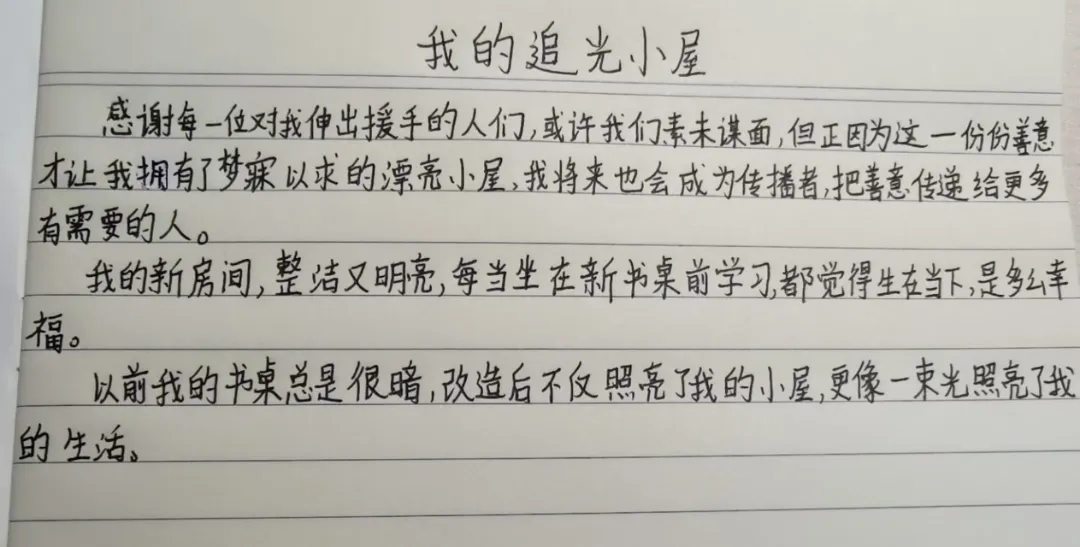 我的追光小屋
感谢每一位对我伸出援手的人们,或许我们素未谋面,但正因为这一份份善意
才让我拥有了梦寐以求的漂亮小屋,我将来也会成为传播者,把善意传递给更多
有需要的人。
我的新房间,整洁又明亮,每当坐在新书桌前学习,都觉得生在当下,是多么幸
福。
以前我的书桌总是很暗,改造后不仅照亮了我的小屋,更像一束光照亮了我
的生活。